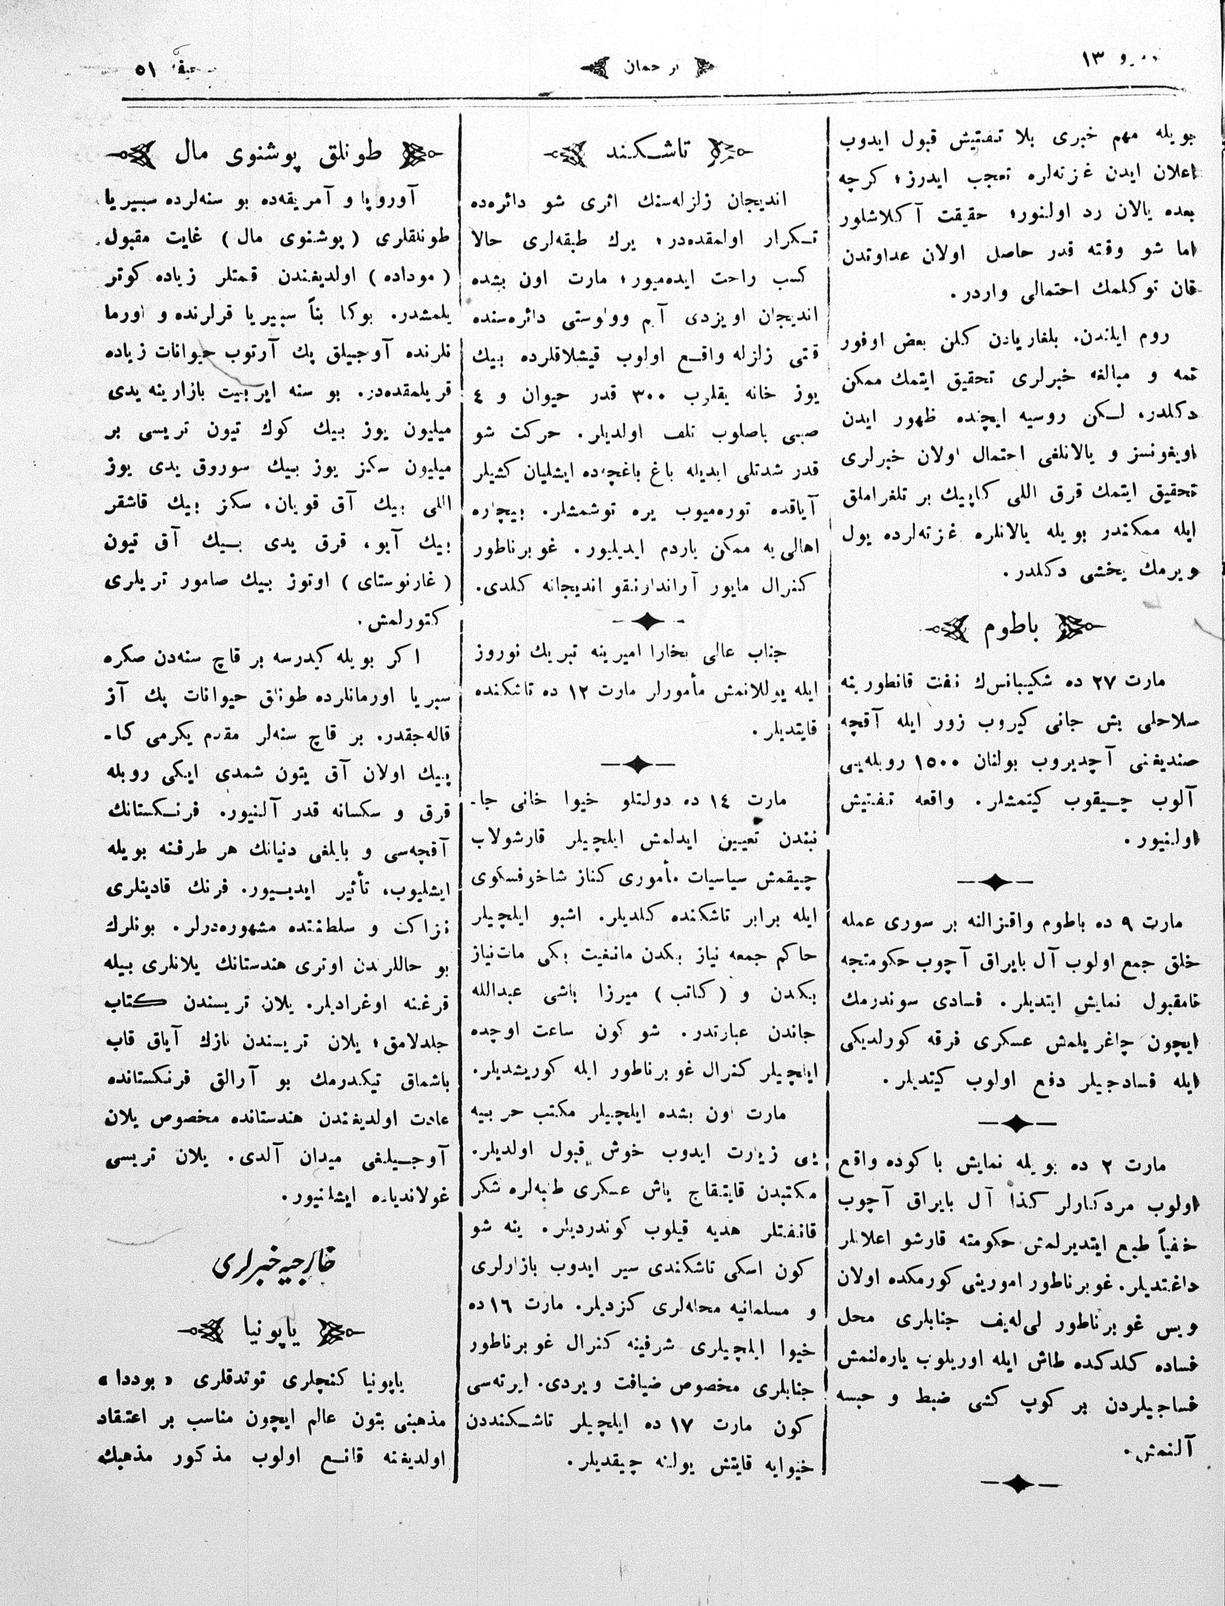 نومرو ١٣
ترجمان
صحیفه ٥١
بویله مهم خبری بلا تفتیش قبول ایدوب
اعلان ایدن غزته‌لره تعجب ایدرز؛ کرچه
بعده یالان رد اولنور؛ حقیقت آکلاشلور
اما شو وقته قدر حاصل اولان عداوتدن
قان توکلمك احتمالی واردر.
روم ایلندن، بلغاریادن کلن بعض اوفور
تمه و مبالغه خبرلری تحقیق ایتمك ممکن
دکلدر. لـکن روسیه ایچنده ظهور ایدن
اویغونسز و یالانلغی احتمال اولان خبرلری
تحقیق ایتمك قرق اللی کاپیك بر تلغراملق
ایله ممکندر بویله یالانلره غزته‌لرده یول
ویرمك یخشی دکلدر.
باطوم
مارت ٢٧ ده شکیبانس‌ك نفت قانطورینه
سلاحلی بش جانی کیروب زور ایله آقچه
صندیغنی آچدیروب بولنان ١٥٠٠ روبله‌یی
آلوب چـیقوب کیتمشلر. واقعه تفتیش
اولنیور.
مارت ٩ ده باطوم واقزالنه بر سوری عمله
خلق جمع اولوب آل بایراق آچوب حکومتجه
نامقبول نمایش ایتدیلر. فسادی سوندرمك
ایچون چاغریلمش عسکری فرقه کورلدیکی
ایله فسادجیلر دفع اولوب کیتدیلر.
مارت ٢ ده بویله نمایش باکوده واقع
اولوب مردکارلر کذا آل بایراق آچوب
خفیاً طبع ایتدیرلمش حکومته قارشو اعلانلر
داغتدیلر. غوبرناطور اموریتی کورمکده اولان
ویس غوبرناطور لی‌له‌یف جنابلری محل
فساده کلدکده طاش ایله اوریلوب یاره‌لنمش
فسادجیلردن بر کوپ کشی ضبط و حبسه
آلنمش.
تاشـکند
اندیجان زلزله‌سنك اثری شو دائره‌ده
تـکرار اولمقده‌در؛ یرك طبقه‌لری حالا
کسب راحت ایده‌میور؛ مارت اون بشده
اندیجان اویزدی آیم وولوستی دائره‌سنده
قتی زلزله واقـع اولوب قیشلاقلرده بیك
یوز خانه یقلوب ٣٠٠ قدر حیوان و ٤
صبی باصلوب تلف اولدیلر. حرکت شو
قدر شدتلی ایدیله باغ باغچه‌ده ایشلیان کشیلر
آیاقده توره‌میوب یره توشمشلر. بیچاره
اهالی‌یه ممکن یاردم ایدیلیور. غوبرناطور
کنرال مایور آراندارنقو اندیجانه کلدی.
جناب عالی بخارا امیرینه تبریك نوروز
ایله یوللانمش مأمورلر مارت ١٢ ده تاشکنده
قایتدیلر.
مارت ١٤ ده دولتلو خیوا خانی جا-
نبندن تعیین ایدلمش ایلچیلر قارشولاب
چیقمش سیاسیات مأموری کناز شاخوفسکوی
ایله برابر تاشکنده کلدیلر. اشبو ایلچیلر
حاکم جمعه نیاز بکدن مانغیت بکی مات‌نیاز
بکدن و (کاتب) میرزا باشی عبدالله
جاندن عبارتدر. شو کون ساعت اوچده
ایلچیلر کنرال غوبرناطور ایله کوریشدیلر.
مارت اون بشده ایلچیلر مکتب حربیه
یی زیارت ایدوب خوش قبول اولدیلر.
مکتبدن قایتقاچ یاش عسکری طلبه‌لره شکر
قانفتلر هدیه قیلوب کوندردیلر. ینه شو
کون اسکی تاشکندی سیر ایدوب بازارلری
و مسلمانیه محله‌لری کزدیلر. مارت ١٦ ده
خیوا ایلچیلری شرفینه کنرال غوبرناطور
جنابلری مخصوص ضیافت ویردی. ایرته‌سی
کون مارت ١٧ ده ایلچیلر تاشـکنددن
خیوایه قایتش یولنه چیقدیلر.
طونلق پوشنوی مال
آوروپا و آمریقه‌ده بو سنه‌لرده سبیریا
طونلقلری (پوشنوی مال) غایت مقبول
(موداده) اولدیغندن قمتلر زیاده کوتر
یلمشدر. بوکا بنأً سبیریا قرلرنده و اورما
نلرنده آوجیلق پك آرتوب حیوانات زیاده
قریلمقده‌در. بو سنه ایربیت بازارینه یدی
میلیون یوز بیك کوك تیون تریسی بر
میلیون سکز یوز بیك سوروق یدی یوز
اللی بیك آق قویان، سکز بیك قاشقر
بیك آیو، قرق یدی بـیك آق تیون
(غارنوستای) اوتوز بیك صامور تریلری
کتورلمش.
اکر بویله کیدرسه بر قاچ سنه‌دن صکره
سبریا اورمانلرده طونلق حیوانات پك آز
قاله‌جقدر. بر قاچ سنه‌لر مقدم یکرمی کا-
پیك اولان آق یتون شمدی ایکی روبله
قرق و سکسانه قدر آلنیور. فرنـکستانك
آقچه‌سی و بایلغی دنیانك هر طرفنه بویله
ایشلیوب، تأثیر ایدیـیور. فرنك قادینلری
نزاکت و سلطنتده مشهوره‌درلر. بونلرك
بو حاللرندن اوتری هندستانك یلانلری بیله
قرغنه اوغرادیلر. یلان تریسندن کتاب
جلدلامق؛ یلان تریسندن نازك آیاق قاب
باشماق تیکدرمك بو آرالق فرنکستانده
عادت اولدیغندن هندستانده مخصوص یلان
آوجـیلغی میدان آلدی. یلان تریسی
غولاندیاده ایشلانیور.
خارجیه خبرلری
یاپونیا
یاپونیا کنجلری توتدقلری «بوددا»
مذهبنی بتون عالم ایچون مناسب بر اعتقاد
اولدیغنه قانـع اولوب مذکور مذهبك